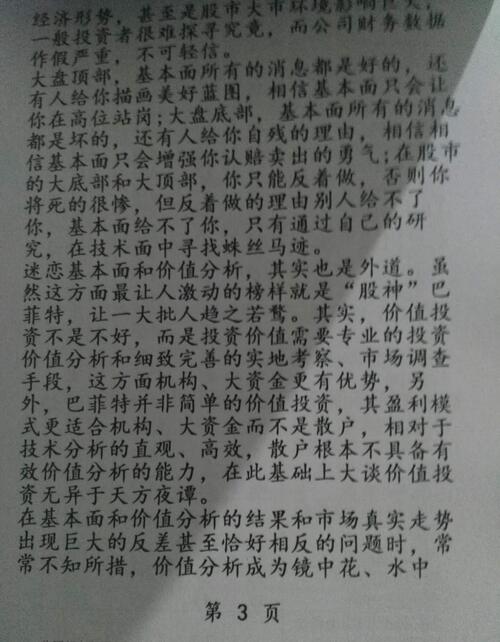 经济形势，甚至是股市大市环境影响巨大，
一般投资者很难探寻究竟，而公司财务数据
作假严重，不可轻信。
大盘顶部，基本面所有的消息都是好的，还
有人给你描画美好蓝图，相信基本面只会让
你在高位站岗；大盘底部，基本面所有的消息
都是坏的，还有人给你自残的理由，相信相
信基本面只会增强你认赔卖出的勇气；在股市
的大底部和大顶部，你只能反着做，否则你
将死的很惨，但反着做的理由别人给不了
你，基本面给不了你，只有通过自己的研
究，在技术面中寻找蛛丝马迹。
迷恋基本面和价值分析，其实也是外道。虽
然这方面最让人激动的榜样就是“股神”巴
菲特，让一大批人趋之若鹜。其实，价值投
资不是不好，而是投资价值需要专业的投资
价值分析和细致完善的实地考察、市场调查
手段，这方面机构、大资金更有优势，另
外，巴菲特并非简单的价值投资，其盈利模
式更适合机构、大资金而不是散户，相对于
技术分析的直观、高效，散户根本不具备有
效价值分析的能力，在此基础上大谈价值投
资无异于天方夜谭。
在基本面和价值分析的结果和市场真实走势
出现巨大的反差甚至恰好相反的问题时，常
常不知所措，价值分析成为镜中花、水中
第 3 页